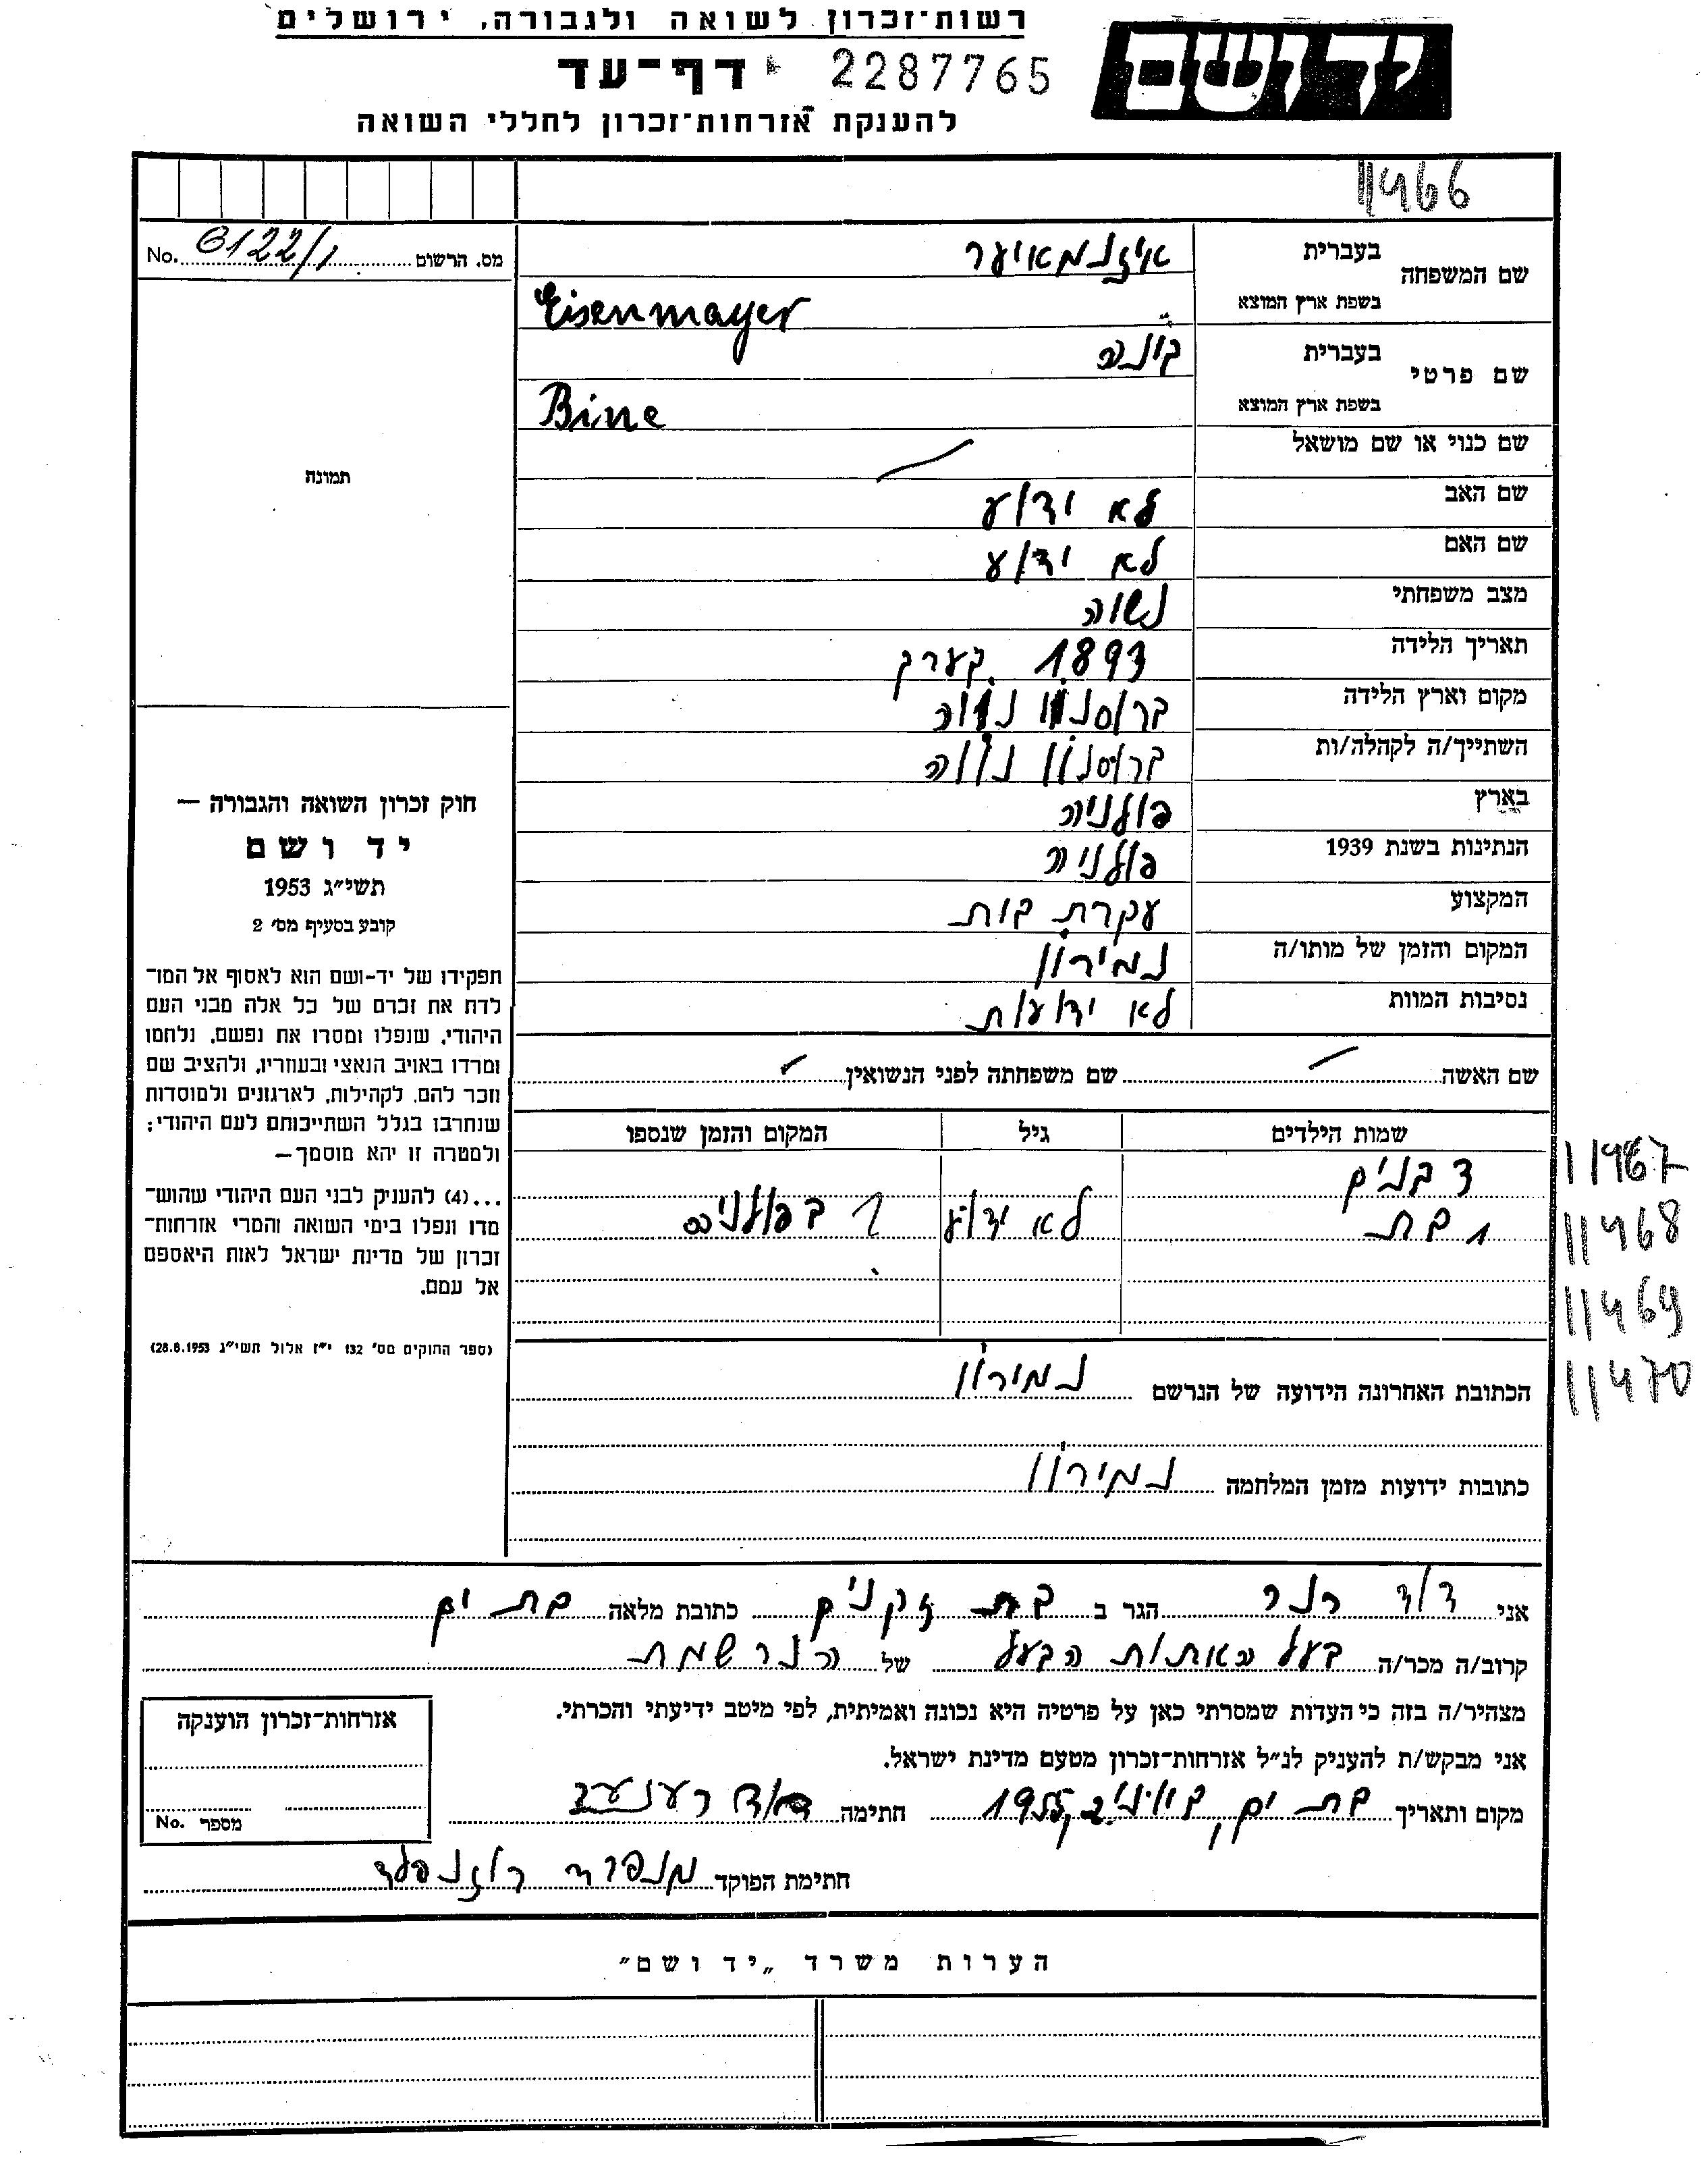 רשות־זכרון לשואה ולגבורה, ירושלים
יד ושם
דף־עד 2287765
להענקת אזרחות־זכרון לחללי השואה
11466
מס. הרשום 6122/1 No.
שם המשפחה
בעברית איזנמאיער
בשפת ארץ המוצא Eisenmayer
שם פרטי
בעברית בינה
בשפת ארץ המוצא Bine
שם כנוי או שם מושאל
שם האב לא ידוע
שם האם לא ידוע
מצב משפחתי נשואה
תאריך הלידה 1893 בערך
מקום וארץ הלידה
השתייך/ה לקהלה/ות
בארץ פולניה
הנתינות בשנת 1939 פולניה
המקצוע עקרת בית
המקום והזמן של מותו/ה נמירוב
נסיבות המוות לא ידועות
תמונה
חוק זכרון השואה והגבורה —
יד ושם
תשי״ג 1953
קובע בסעיף מס׳ 2
תפקידו של יד-ושם הוא לאסוף אל המו־
לדת את זכרם של כל אלה מבני העם
היהודי, שנפלו ומסרו את נפשם, נלחמו
ומרדו באויב הנאצי ובעוזריו, ולהציב שם
וזכר להם, לקהילות, לארגונים ולמוסדות
שנחרבו בגלל השתייכותם לעם היהודי;
ולמטרה זו יהא מוסמך—
...(4) להעניק לבני העם היהודי שהוש־
מדו ונפלו בימי השואה והמרי אזרחות־
זכרון של מדינת ישראל לאות היאספם
אל עמם.
(ספר החוקים מס׳ 132 י״ז אלול תשי״ג 28.8.1953)
שם האשה שם משפחתה לפני הנשואין
שמות הילדים גיל המקום והזמן שנספו
3 בנים
1 בת לא ידוע ? בפולניה
11467
11468
11469
11470
הכתובת האחרונה הידועה של הנרשם נמירוב
כתובות ידועות מזמן המלחמה נמירוב
אני דוד רנר הגר ב בת זקנים כתובת מלאה בת ים
קרוב/ה מכר/ה בעל אחות הבעל של הנרשמת
מצהיר/ה בזה כי העדות שמסרתי כאן על פרטיה היא נכונה ואמיתית, לפי מיטב ידיעתי והכרתי.
אני מבקש/ת להעניק לנ״ל אזרחות־זכרון מטעם מדינת ישראל.
מקום ותאריך בת ים, 1955 חתימה דוד
חתימת הפוקד מנפרד רוזנפלד
אזרחות־זכרון הוענקה
מספר No.
הערות משרד „יד ושם״